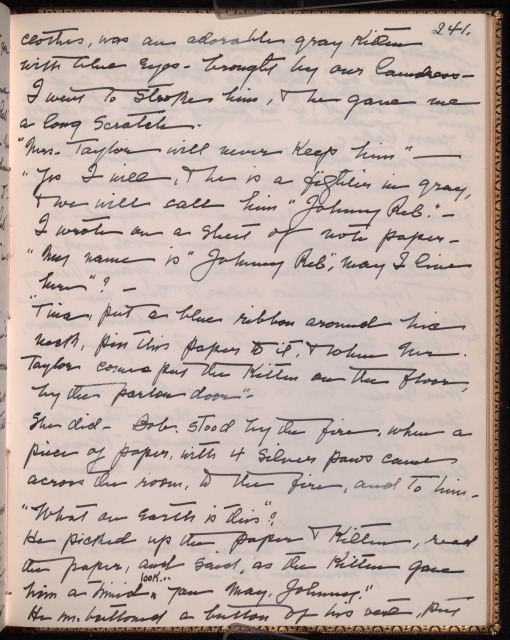 241.
clothes, was an adorable gray Kitten
with blue Eyes - brought by our laundress -
I went to stroke him, & he gave me
a long scratch.
"Mrs. Taylor will never keep him" —
"Yes I will, & he is a fighter in gray,
& we will call him "Johnny Reb." -
I wrote on a sheet of note paper -
"My name is "Johnny Reb", may I live
here"? -
"Tina, put a blue ribbon around his
neck, pin this paper to it, & when Mr.
Taylor comes put the Kitten on the floor,
by the parlor door" -
She did - Bob. stood by the fire, when a
piece of paper, with 4 silver paws came
across the room, to the fire, and to him -
"What on Earth is this"?
He picked up the paper & Kitten, read
the paper, and said, as the Kitten gave
look..
him a timid, "you may, Johnny."
He unbuttoned a button of his vest, put